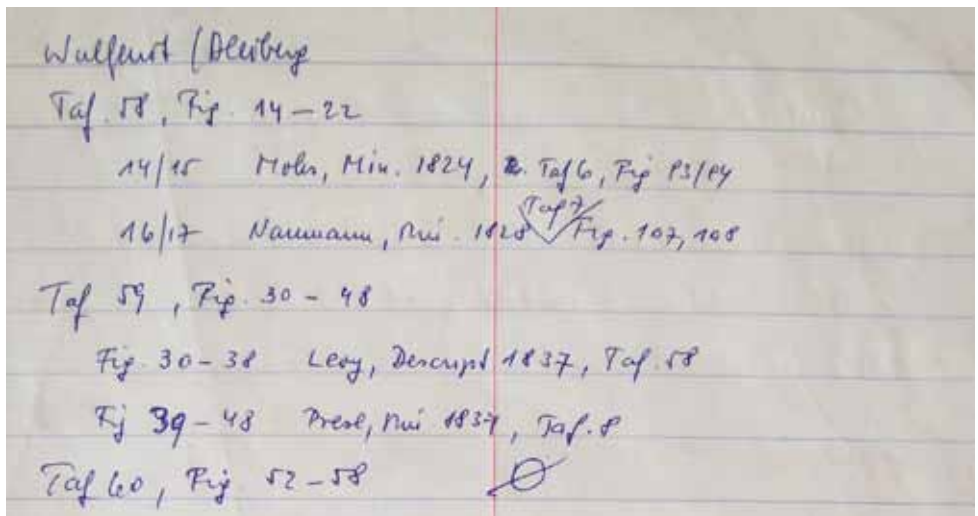 Wulfenit / Bleiberg
Taf. 58, Fig. 14 – 22
14/15 Mohs, Min. 1824, Taf 6, Fig 83/84
16/17 Naumann, Min. 1828 Taf 7 Fig. 107, 108
Taf 59, Fig. 30 – 48
Fig. 30 – 38 Levy, Descript 1837, Taf. 58
Fig 39 – 48 Presl, Min 1837, Taf. 8
Taf 60, Fig 52 – 58 Ø